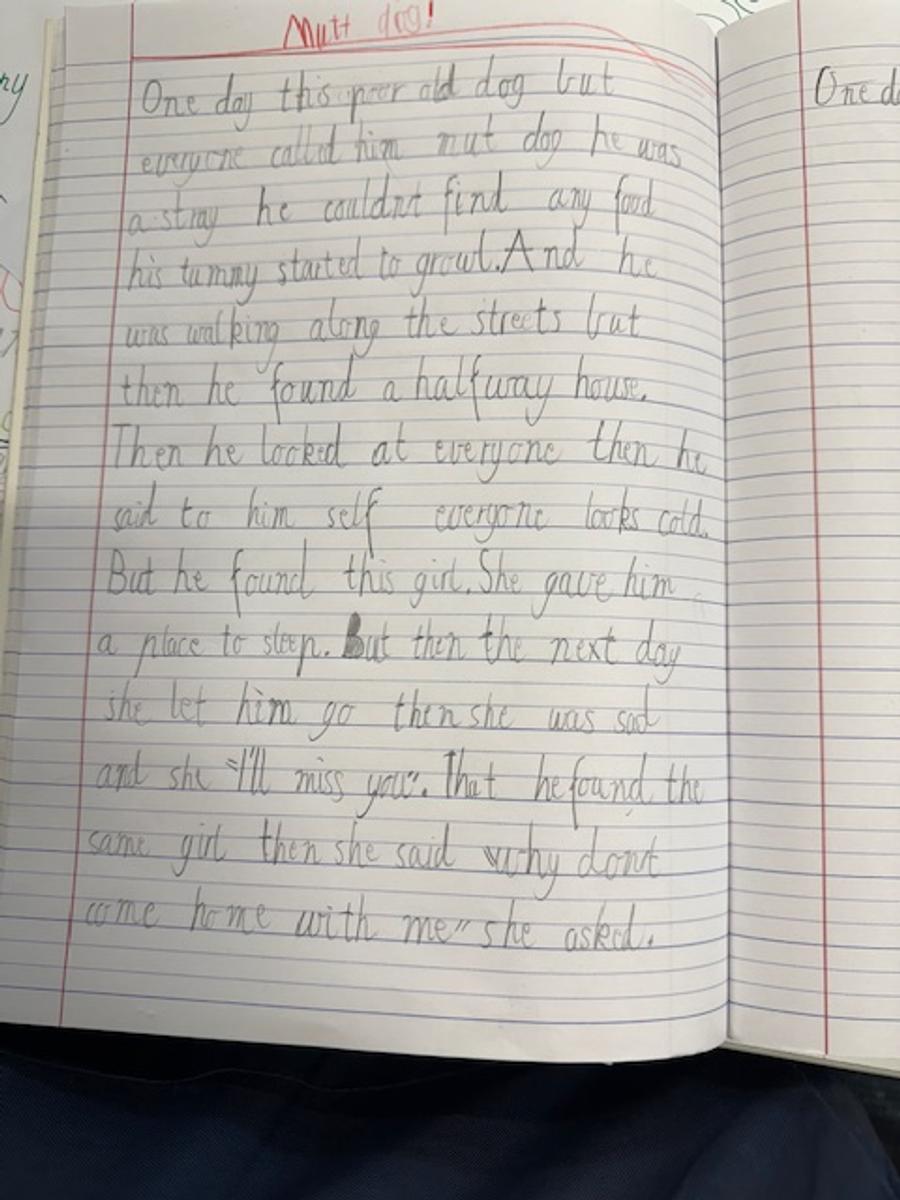 Mutt dog!
One day this poor old dog but
everyone called him mut dog he was
a stray he couldnt find any food
his tummy started to growl. And he
was walking along the streets but
then he found a halfway house.
Then he looked at everyone then he
said to him self everyone looks cold.
But he found this girl. She gave him
a place to sleep. But then the next day
she let him go then she was sad
and she "I'll miss you". That he found the
same girl then she said why dont
come home with me" she asked.
One d
ny